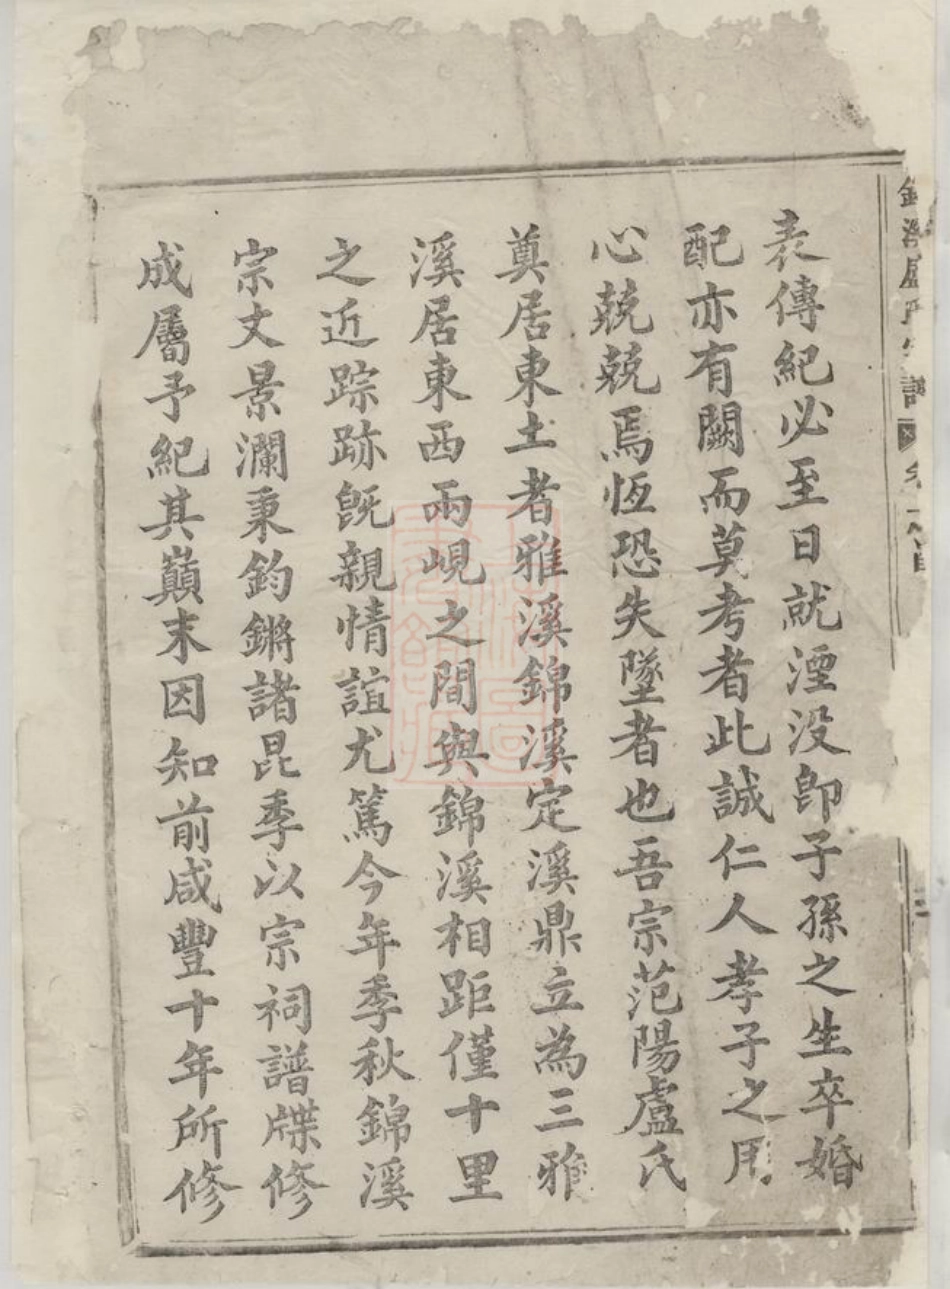 錦溪盧氏宗譜 卷之首
表傳紀必至日就湮没卽子孫之生卒婚
配亦有闕而莫考者此誠仁人孝子之用
心兢兢焉恆恐失墜者也吾宗范陽盧氏
奠居東土者雅溪錦溪定溪鼎立為三雅
溪居東西兩峴之間與錦溪相距僅十里
之近踪跡旣親情誼尤篤今年季秋錦溪
宗文景瀾秉鈞鏘諸昆季以宗祠譜牒修
成屬予紀其巔末因知前咸豐十年所修